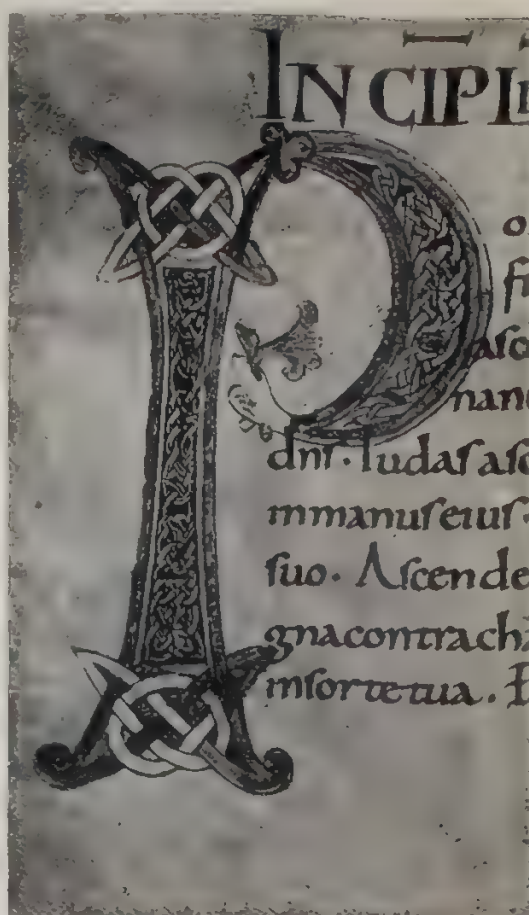 INCIPI
P
o
fi
asc
nanu
dnſ · Iudaſ aſc
inmanuſ eiuſ ·
ſuo · Aſcende
gnacontracha
inſorte tua . P